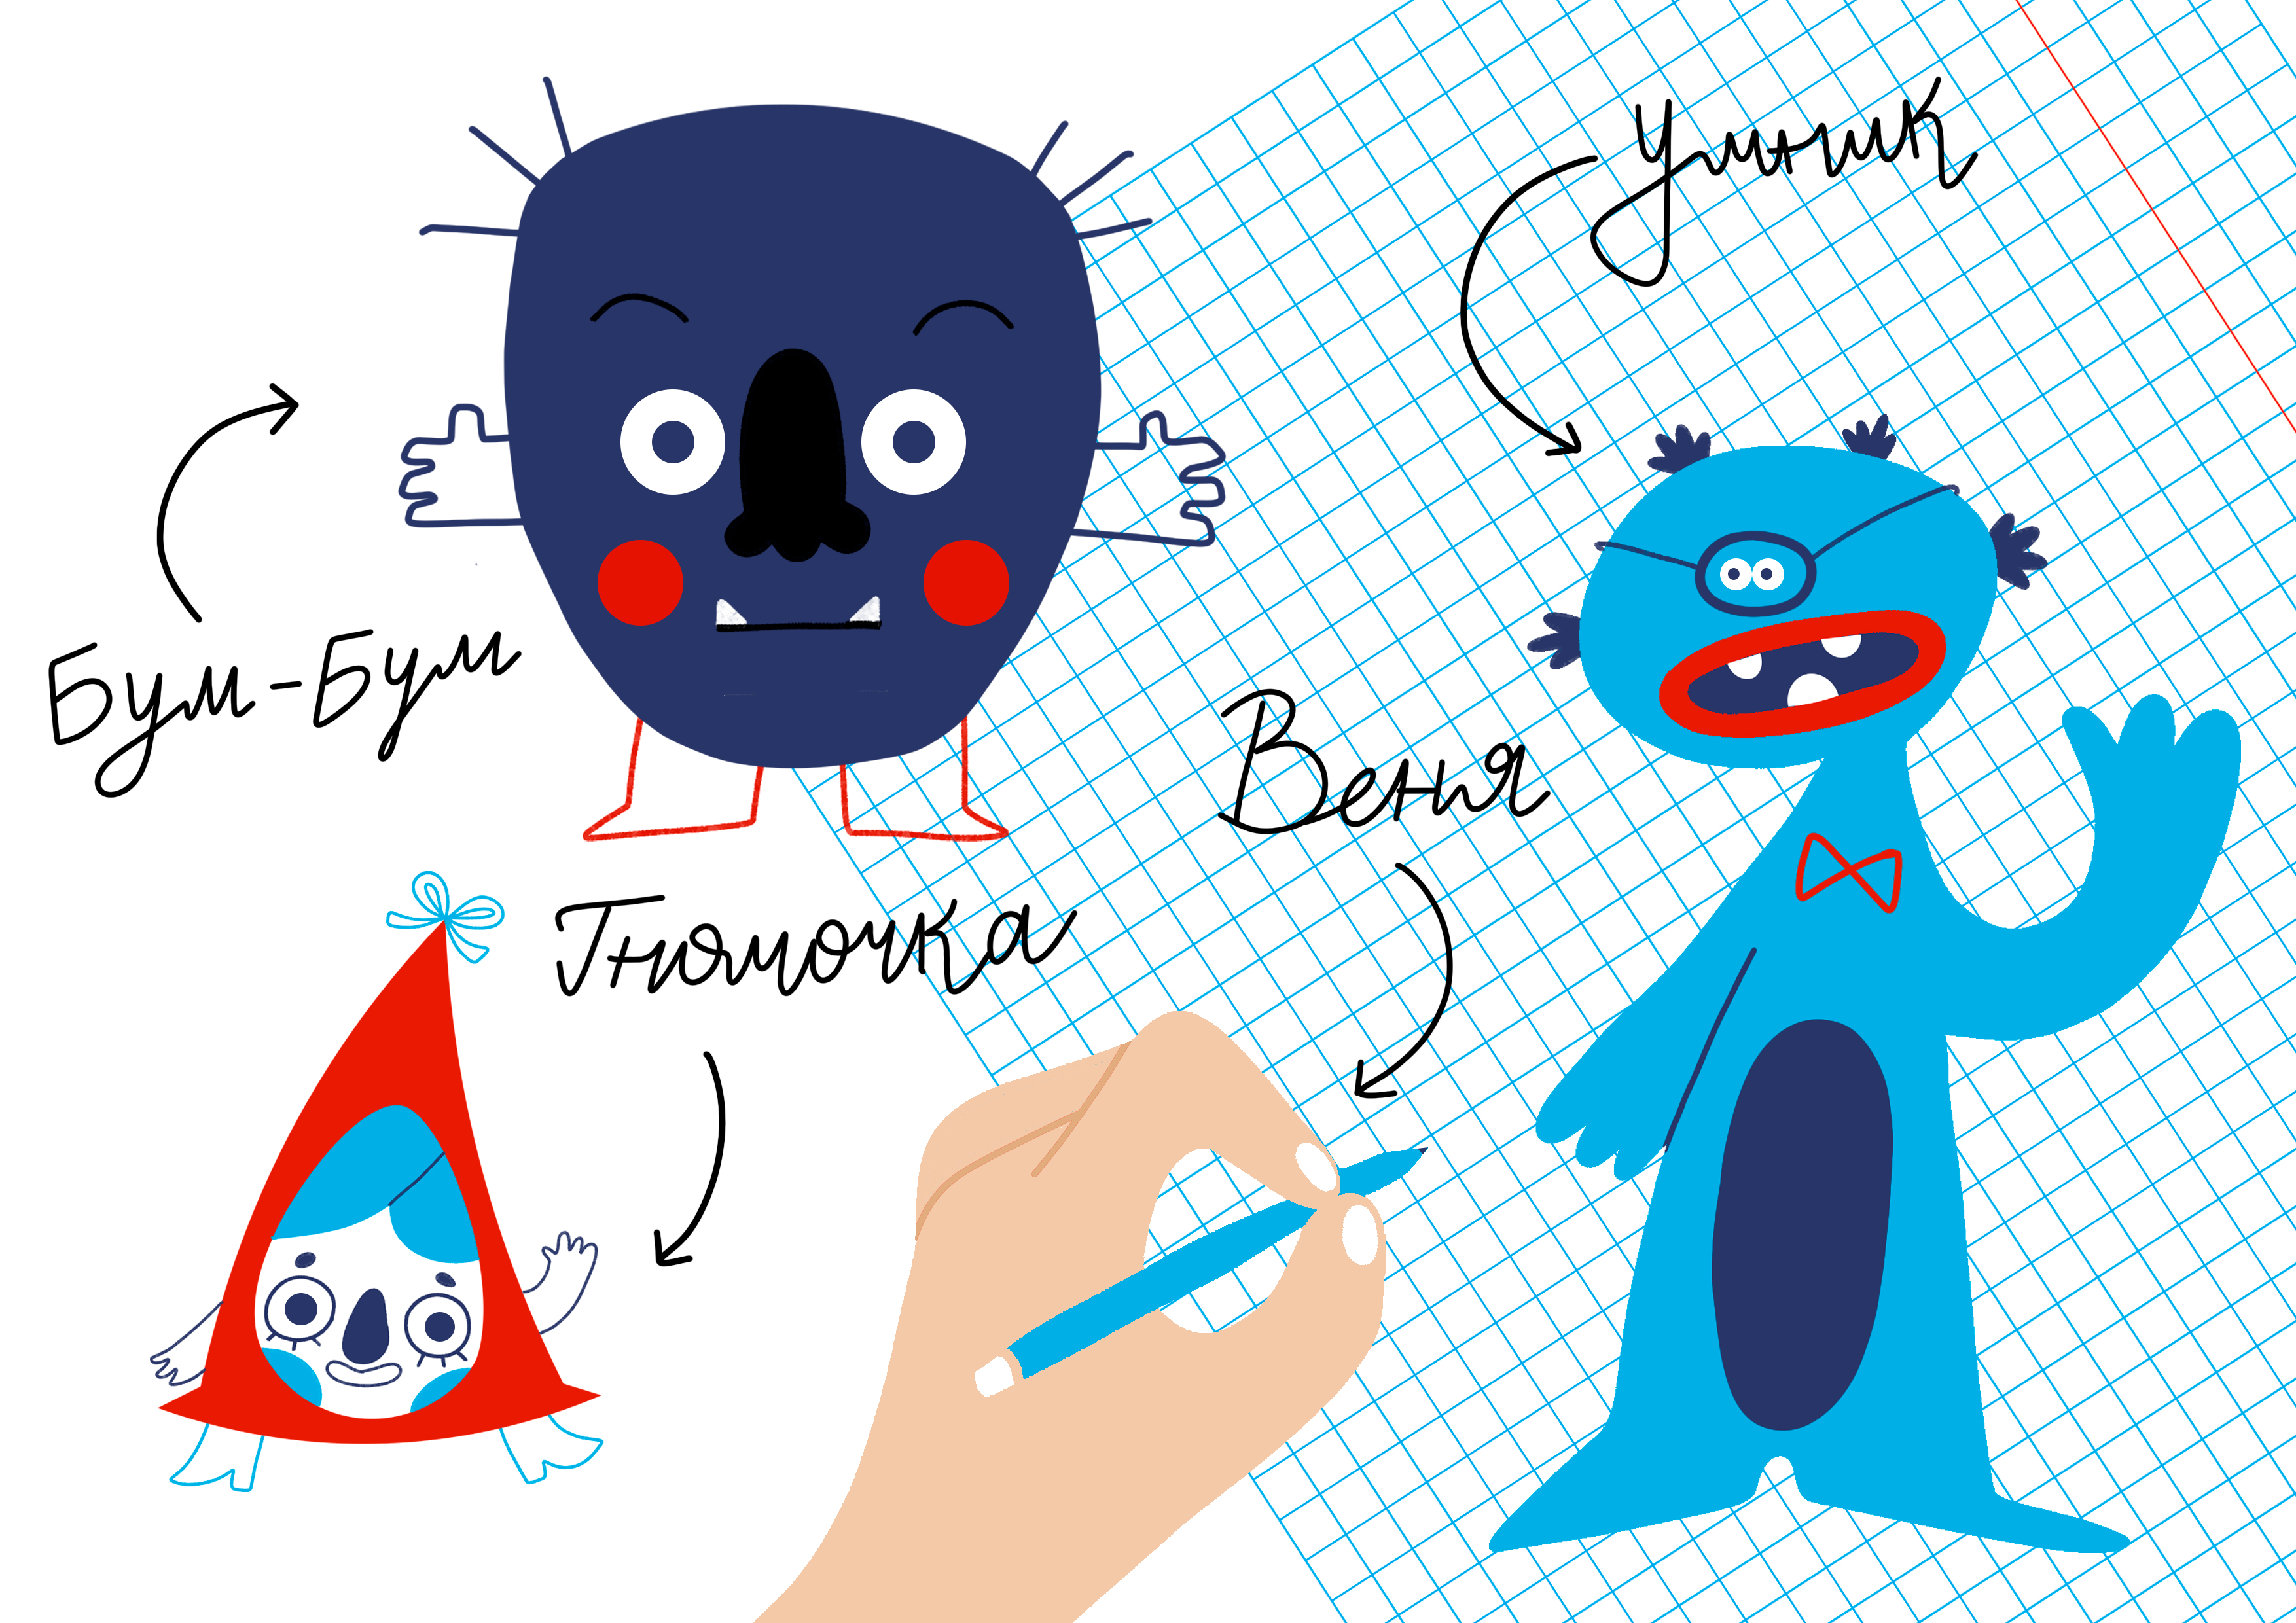 Умник
Бум-Бум
Веня
Гномочка